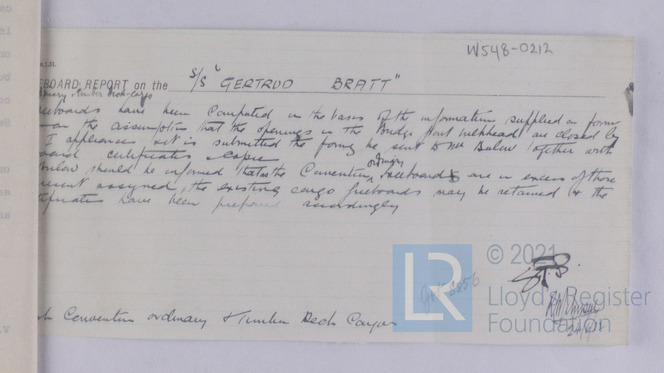 W548-0212
BOARD REPORT on the S/S "GERTRUD BRATT"
Ordinary & Timber Deck Cargo
eeboards have been computed on the basis of the information supplied on form
on the assumption that the openings in the Bridge front bulkhead are closed by
I appliances & it is submitted the forms be sent to Mr Bulow together with
certificates
Bulow should be informed that as the Convention ordinary freeboards are in excess of those
assigned, the existing cargo freeboards may be retained & the
tificates have been prepared accordingly
Convention ordinary & Timber Deck Cargo
© 2021
LR
Lloyd's Register
Foundation